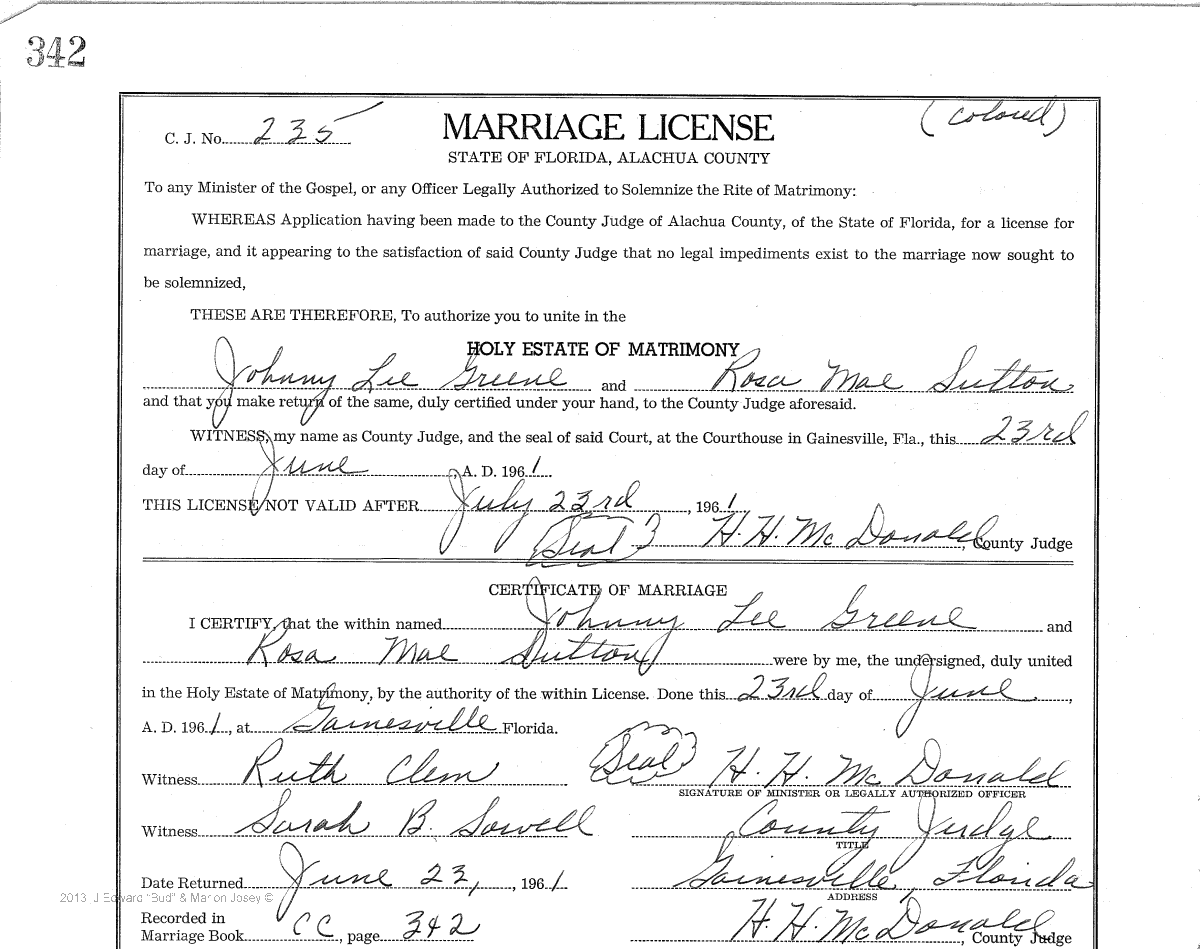 342
C. J. No. 235 MARRIAGE LICENSE (colored)
STATE OF FLORIDA, ALACHUA COUNTY
To any Minister of the Gospel, or any Officer Legally Authorized to Solemnize the Rite of Matrimony:
WHEREAS Application having been made to the County Judge of Alachua County, of the State of Florida, for a license for
marriage, and it appearing to the satisfaction of said County Judge that no legal impediments exist to the marriage now sought to
be solemnized,
THESE ARE THEREFORE, To authorize you to unite in the
HOLY ESTATE OF MATRIMONY
Johnny Lee Greene and Rosa Mae Sutton
and that you make return of the same, duly certified under your hand, to the County Judge aforesaid.
WITNESS, my name as County Judge, and the seal of said Court, at the Courthouse in Gainesville, Fla., this 23rd
day of June, A. D. 1961
THIS LICENSE NOT VALID AFTER July 23rd, 1961
(Seal) H. H. McDonald, County Judge
CERTIFICATE OF MARRIAGE
I CERTIFY, that the within named Johnny Lee Greene and
Rosa Mae Sutton were by me, the undersigned, duly united
in the Holy Estate of Matrimony, by the authority of the within License. Done this 23rd day of June,
A. D. 1961, at Gainesville Florida.
Witness Ruth Clem (Seal) H. H. McDonald
SIGNATURE OF MINISTER OR LEGALLY AUTHORIZED OFFICER
Witness Sarah B. Sowell County Judge
TITLE
Date Returned June 23, , 1961 Gainesville, Florida
ADDRESS
2013 J Edward "Bud" & Marion Josey ©
Recorded in
Marriage Book CC, page 342 H. H. McDonald, County Judge